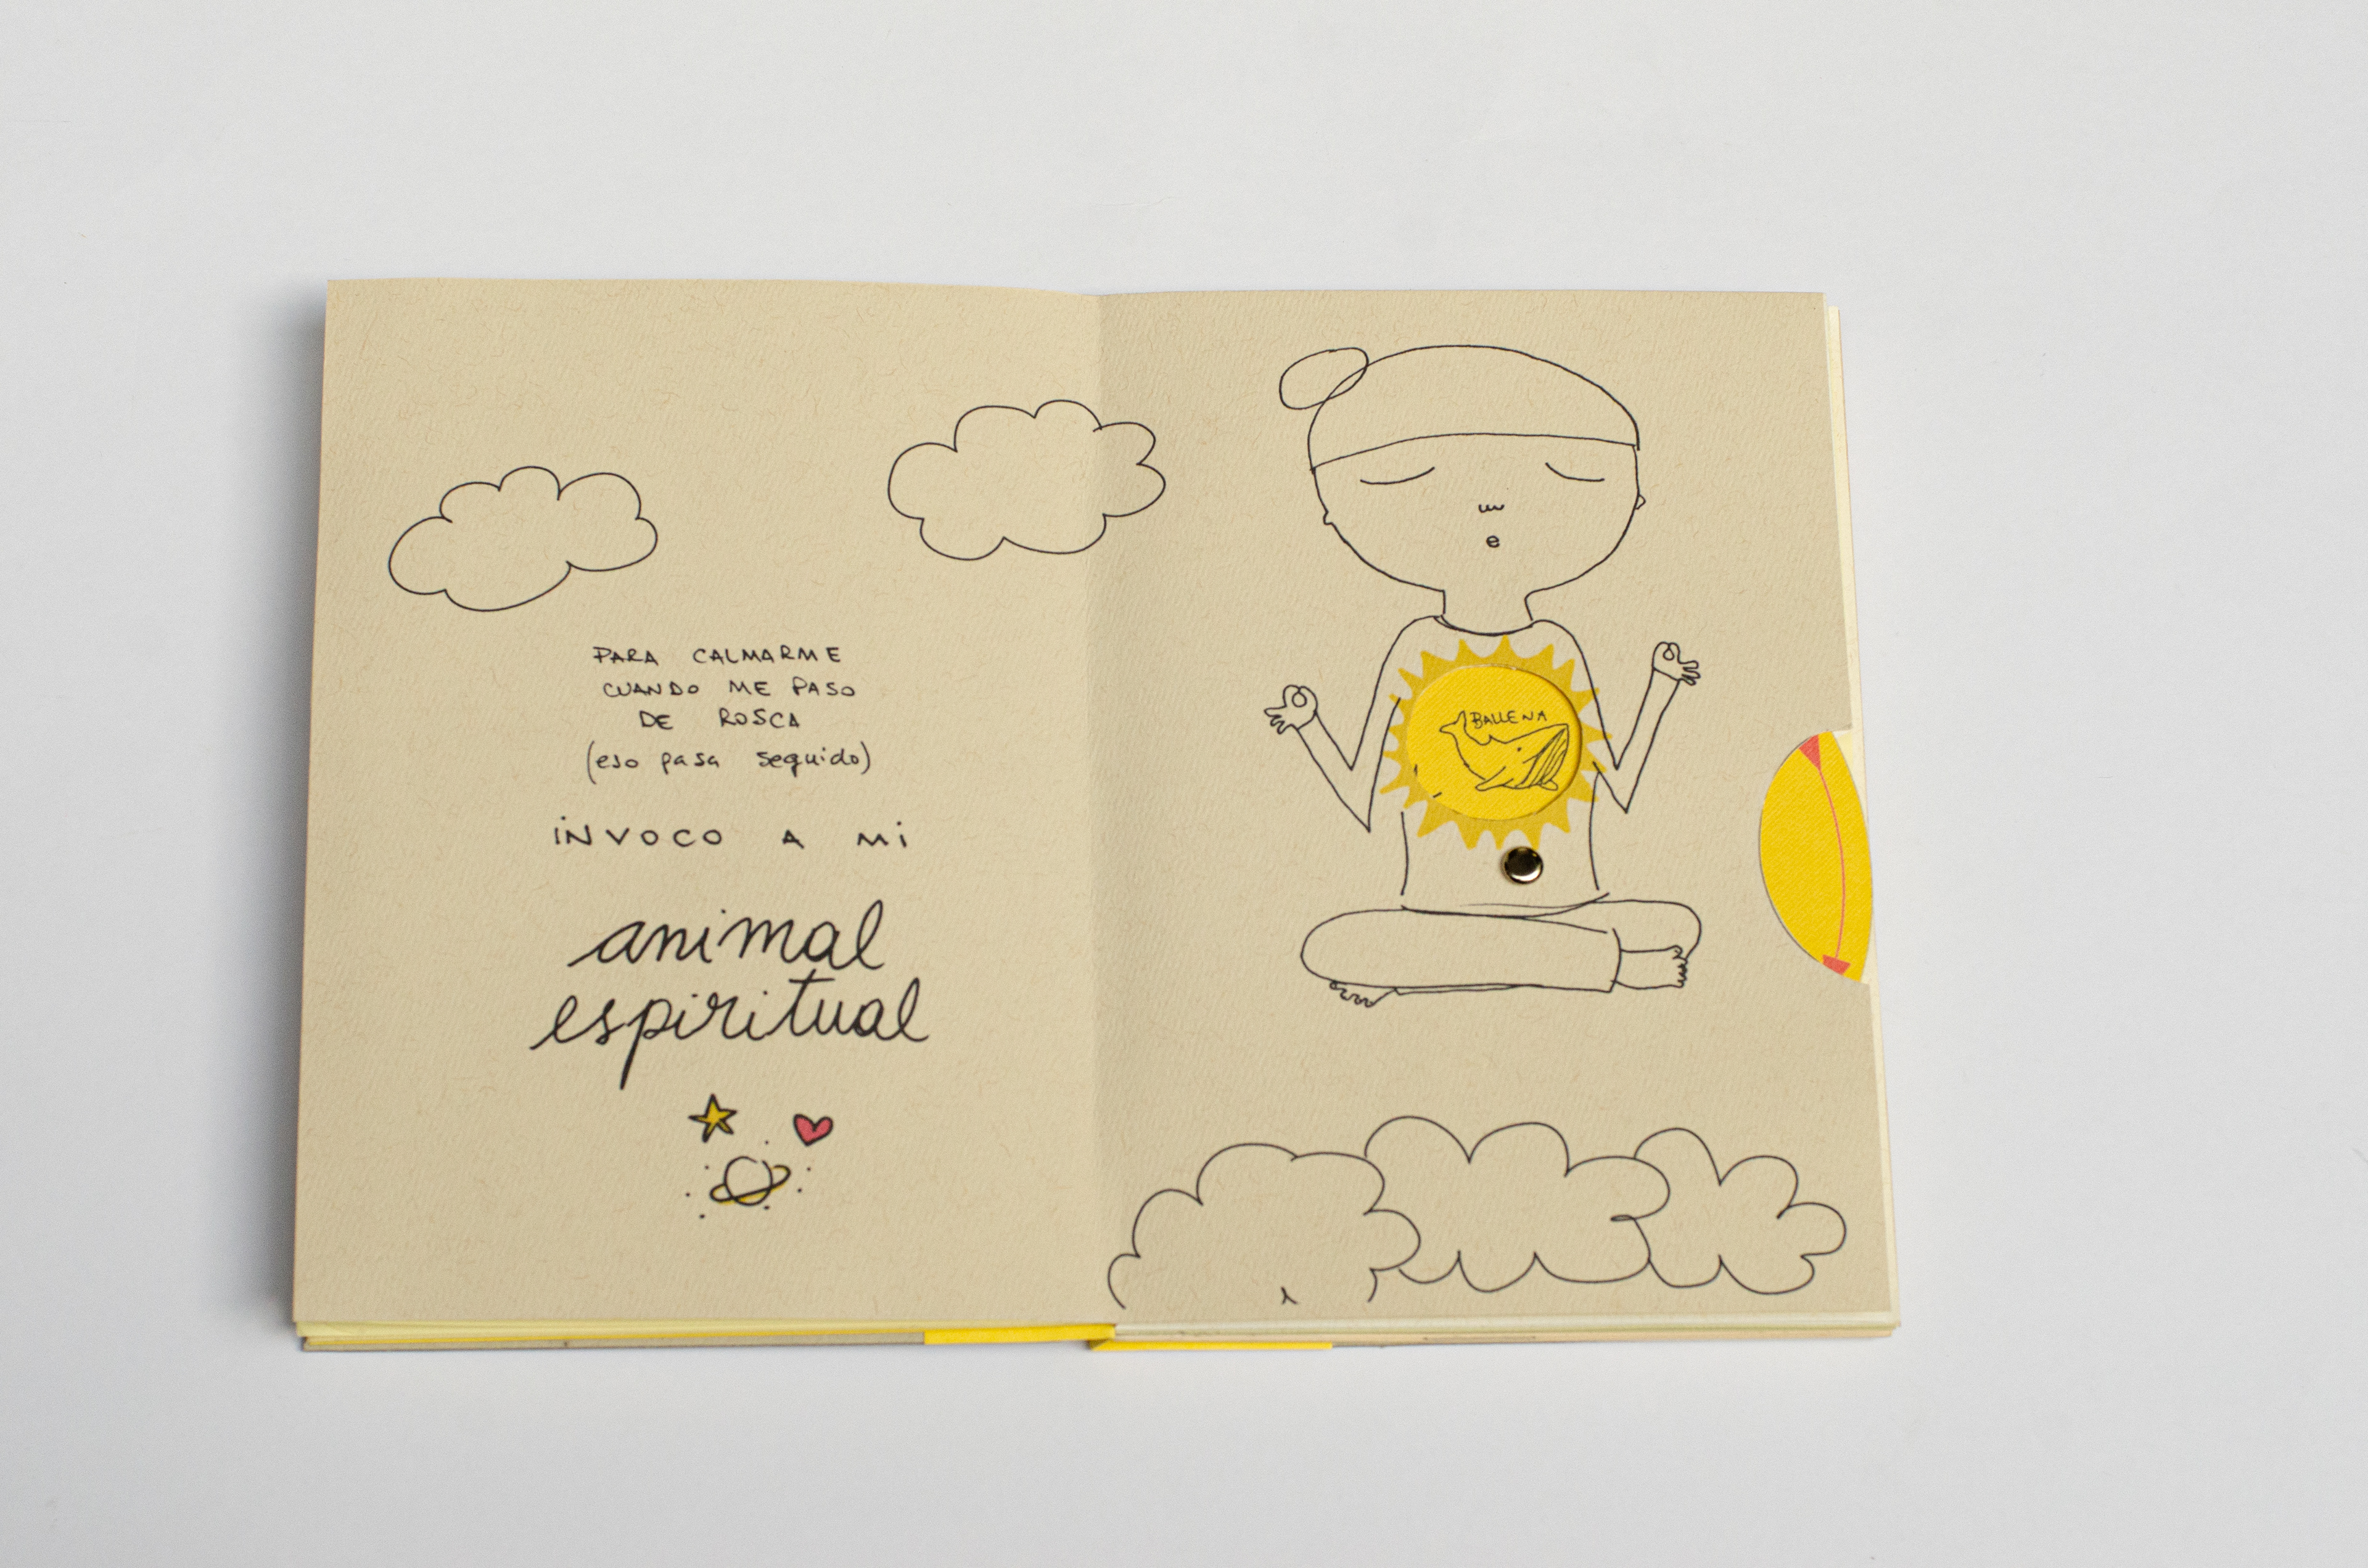 PARA CALMARME
CUANDO ME PASO
DE ROSCA
(eso pasa seguido)
iNVOCO A Mi
animal
espiritual
BALLENA